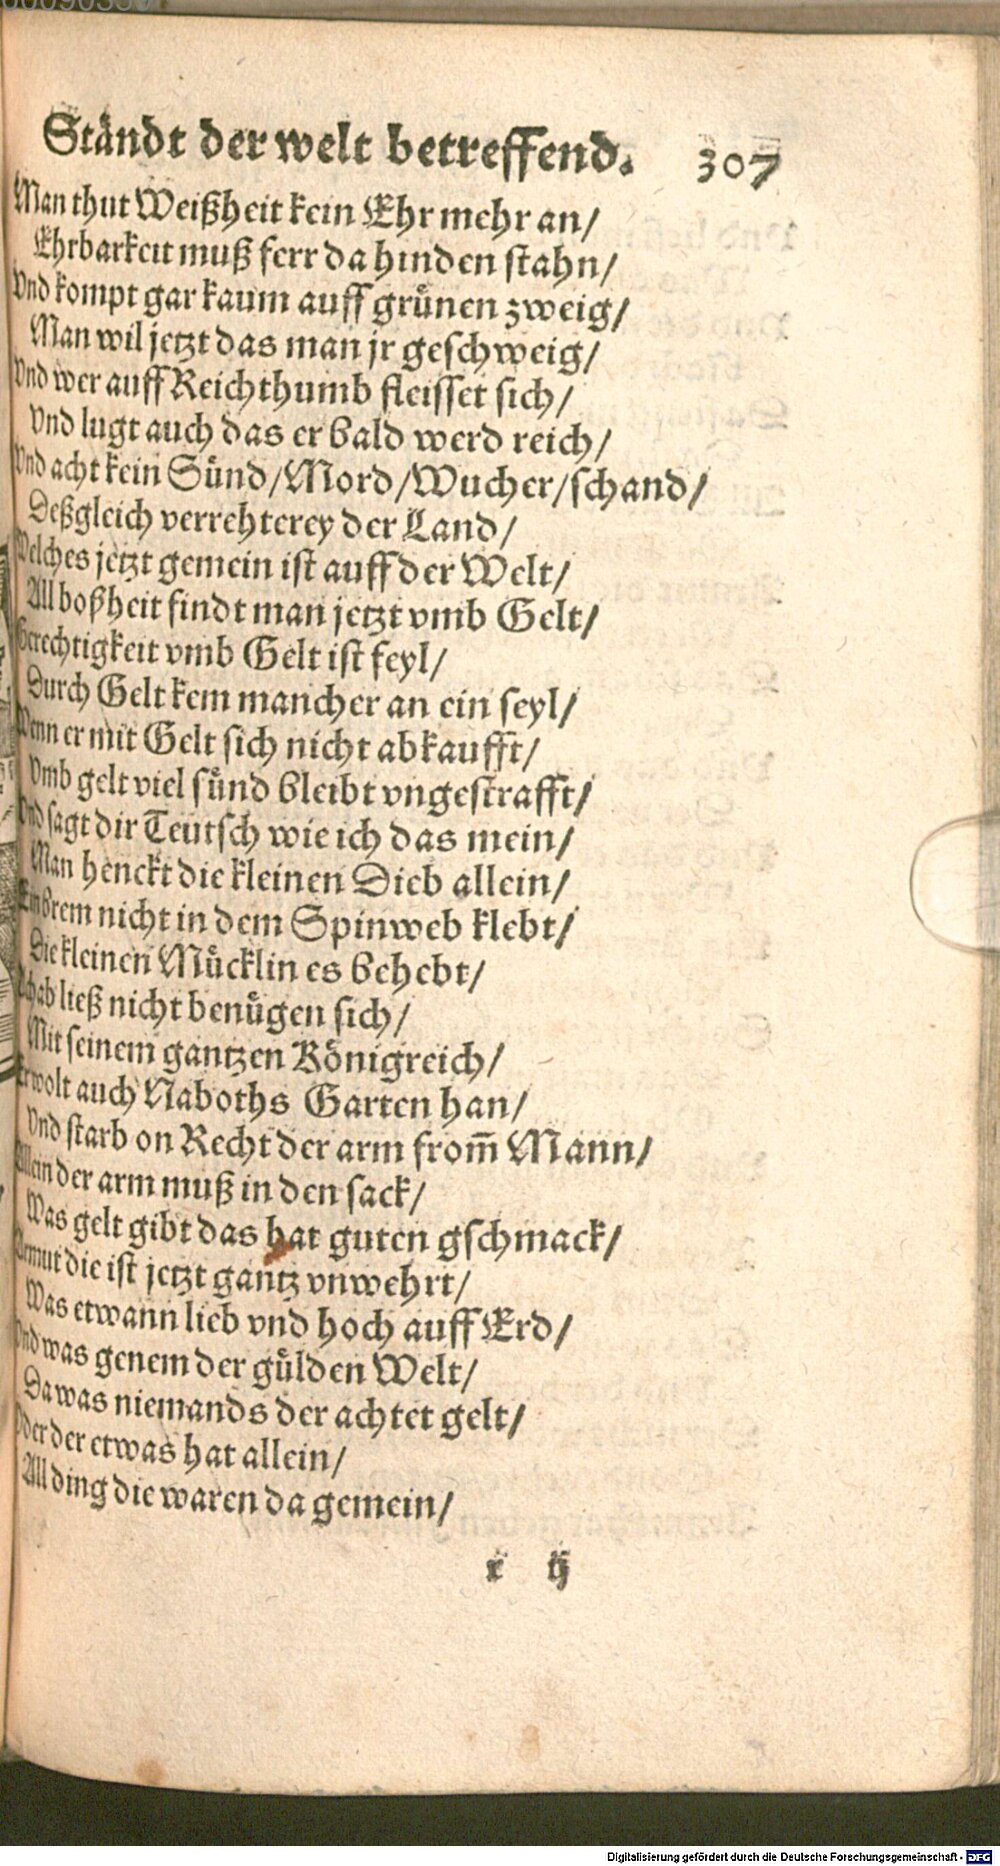 Ständt der welt betreffend. 307
Man thut Weißheit kein Ehr mehr an/
Ehrbarkeit muß ferr da hinden stahn/
Vnd kompt gar kaum auff grünen zweig/
Man wil jetzt das man jr geschweig/
Vnd wer auff Reichthumb fleisset sich/
Vnd lugt auch das er bald werd reich/
Vnd acht kein Sünd/Mord/Wucher/schand/
Deßgleich verrehterey der Land/
Welches jetzt gemein ist auff der Welt/
All boßheit findt man jetzt vmb Gelt/
Gerechtigkeit vmb Gelt ist feyl/
Durch Gelt kem mancher an ein seyl/
Wenn er mit Gelt sich nicht abkaufft/
Vmb gelt viel sünd bleibt vngestrafft/
Vnd sagt dir Teutsch wie ich das mein/
Man henckt die kleinen Dieb allein/
Ein Brem nicht in dem Spinweb klebt/
Die kleinen Mücklin es behebt/
Achab ließ nicht benügen sich/
Mit seinem gantzen Königreich/
Er wolt auch Naboths Garten han/
Vnd starb on Recht der arm from̄ Mann/
Allein der arm muß in den sack/
Was gelt gibt das hat guten gschmack/
Armut die ist jetzt gantz vnwehrt/
Was etwann lieb vnd hoch auff Erd/
Vnd was genem der gülden Welt/
Da was niemands der achtet gelt/
Oder der etwas hat allein/
All ding die waren da gemein/
x ij
Digitalisierung gefördert durch die Deutsche Forschungsgemeinschaft - DFG